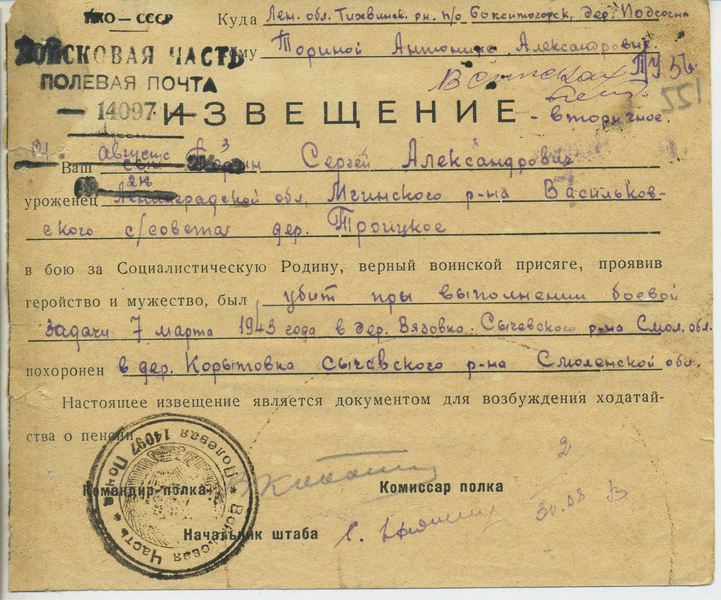 НКО — СССР
ВОЙСКОВАЯ ЧАСТЬ
ПОЛЕВАЯ ПОЧТА
— 14097 —
Куда Лен. обл. Тихвинск. рн. п/о Бокситогорск, дер. Подсосна
Ториной Антонине Александровне
ИЗВЕЩЕНИЕ - вторичное.
551
август 3
Ваш Сергей Александрович
уроженец Ленинградской обл, Мгинского р-на Васильков-
ского с/совета дер. Троицкое
в бою за Социалистическую Родину, верный воинской присяге, проявив
геройство и мужество, был убит при выполнении боевой
задачи 7 марта 1943 года в дер. Вязовка Сычевского р-на Смол. обл.
похоронен в дер. Корытовка Сычевского р-на Смоленской обл.
Настоящее извещение является документом для возбуждения ходатай-
ства о пенсии
Командир полка
Комиссар полка
Начальник штаба
Войсковая Часть * Полевая Почта 14097 *